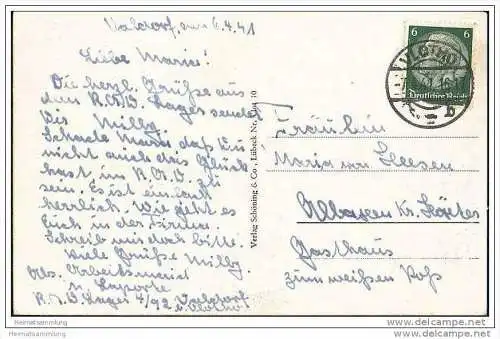 Valdorf, den 6.4.41
Liebe Maria!
Die herzl. Grüße aus
dem R.A.D. Lager sendet
Dir Milly.
Schade Maria, daß Du
nicht auch das Glück
hast im R.A.D. zu
sein. Es ist einfach
herrlich. Wie geht es
Euch in der Firma.
Schreib mir doch bitte.
Viele Grüße Milly.
Abs. Arbeitsmaid
R.A.D. Lager 4/92 Valdorf
ü. Vlotho
Verlag Schöning & Co., Lübeck
6 6
Deutsches Reich
b
Fräulein
Maria von
Kr. Höxter
Gasthaus
zum weißen Roß
Heimatsammlung
Heimatsammlung.de
www.delcampe.net